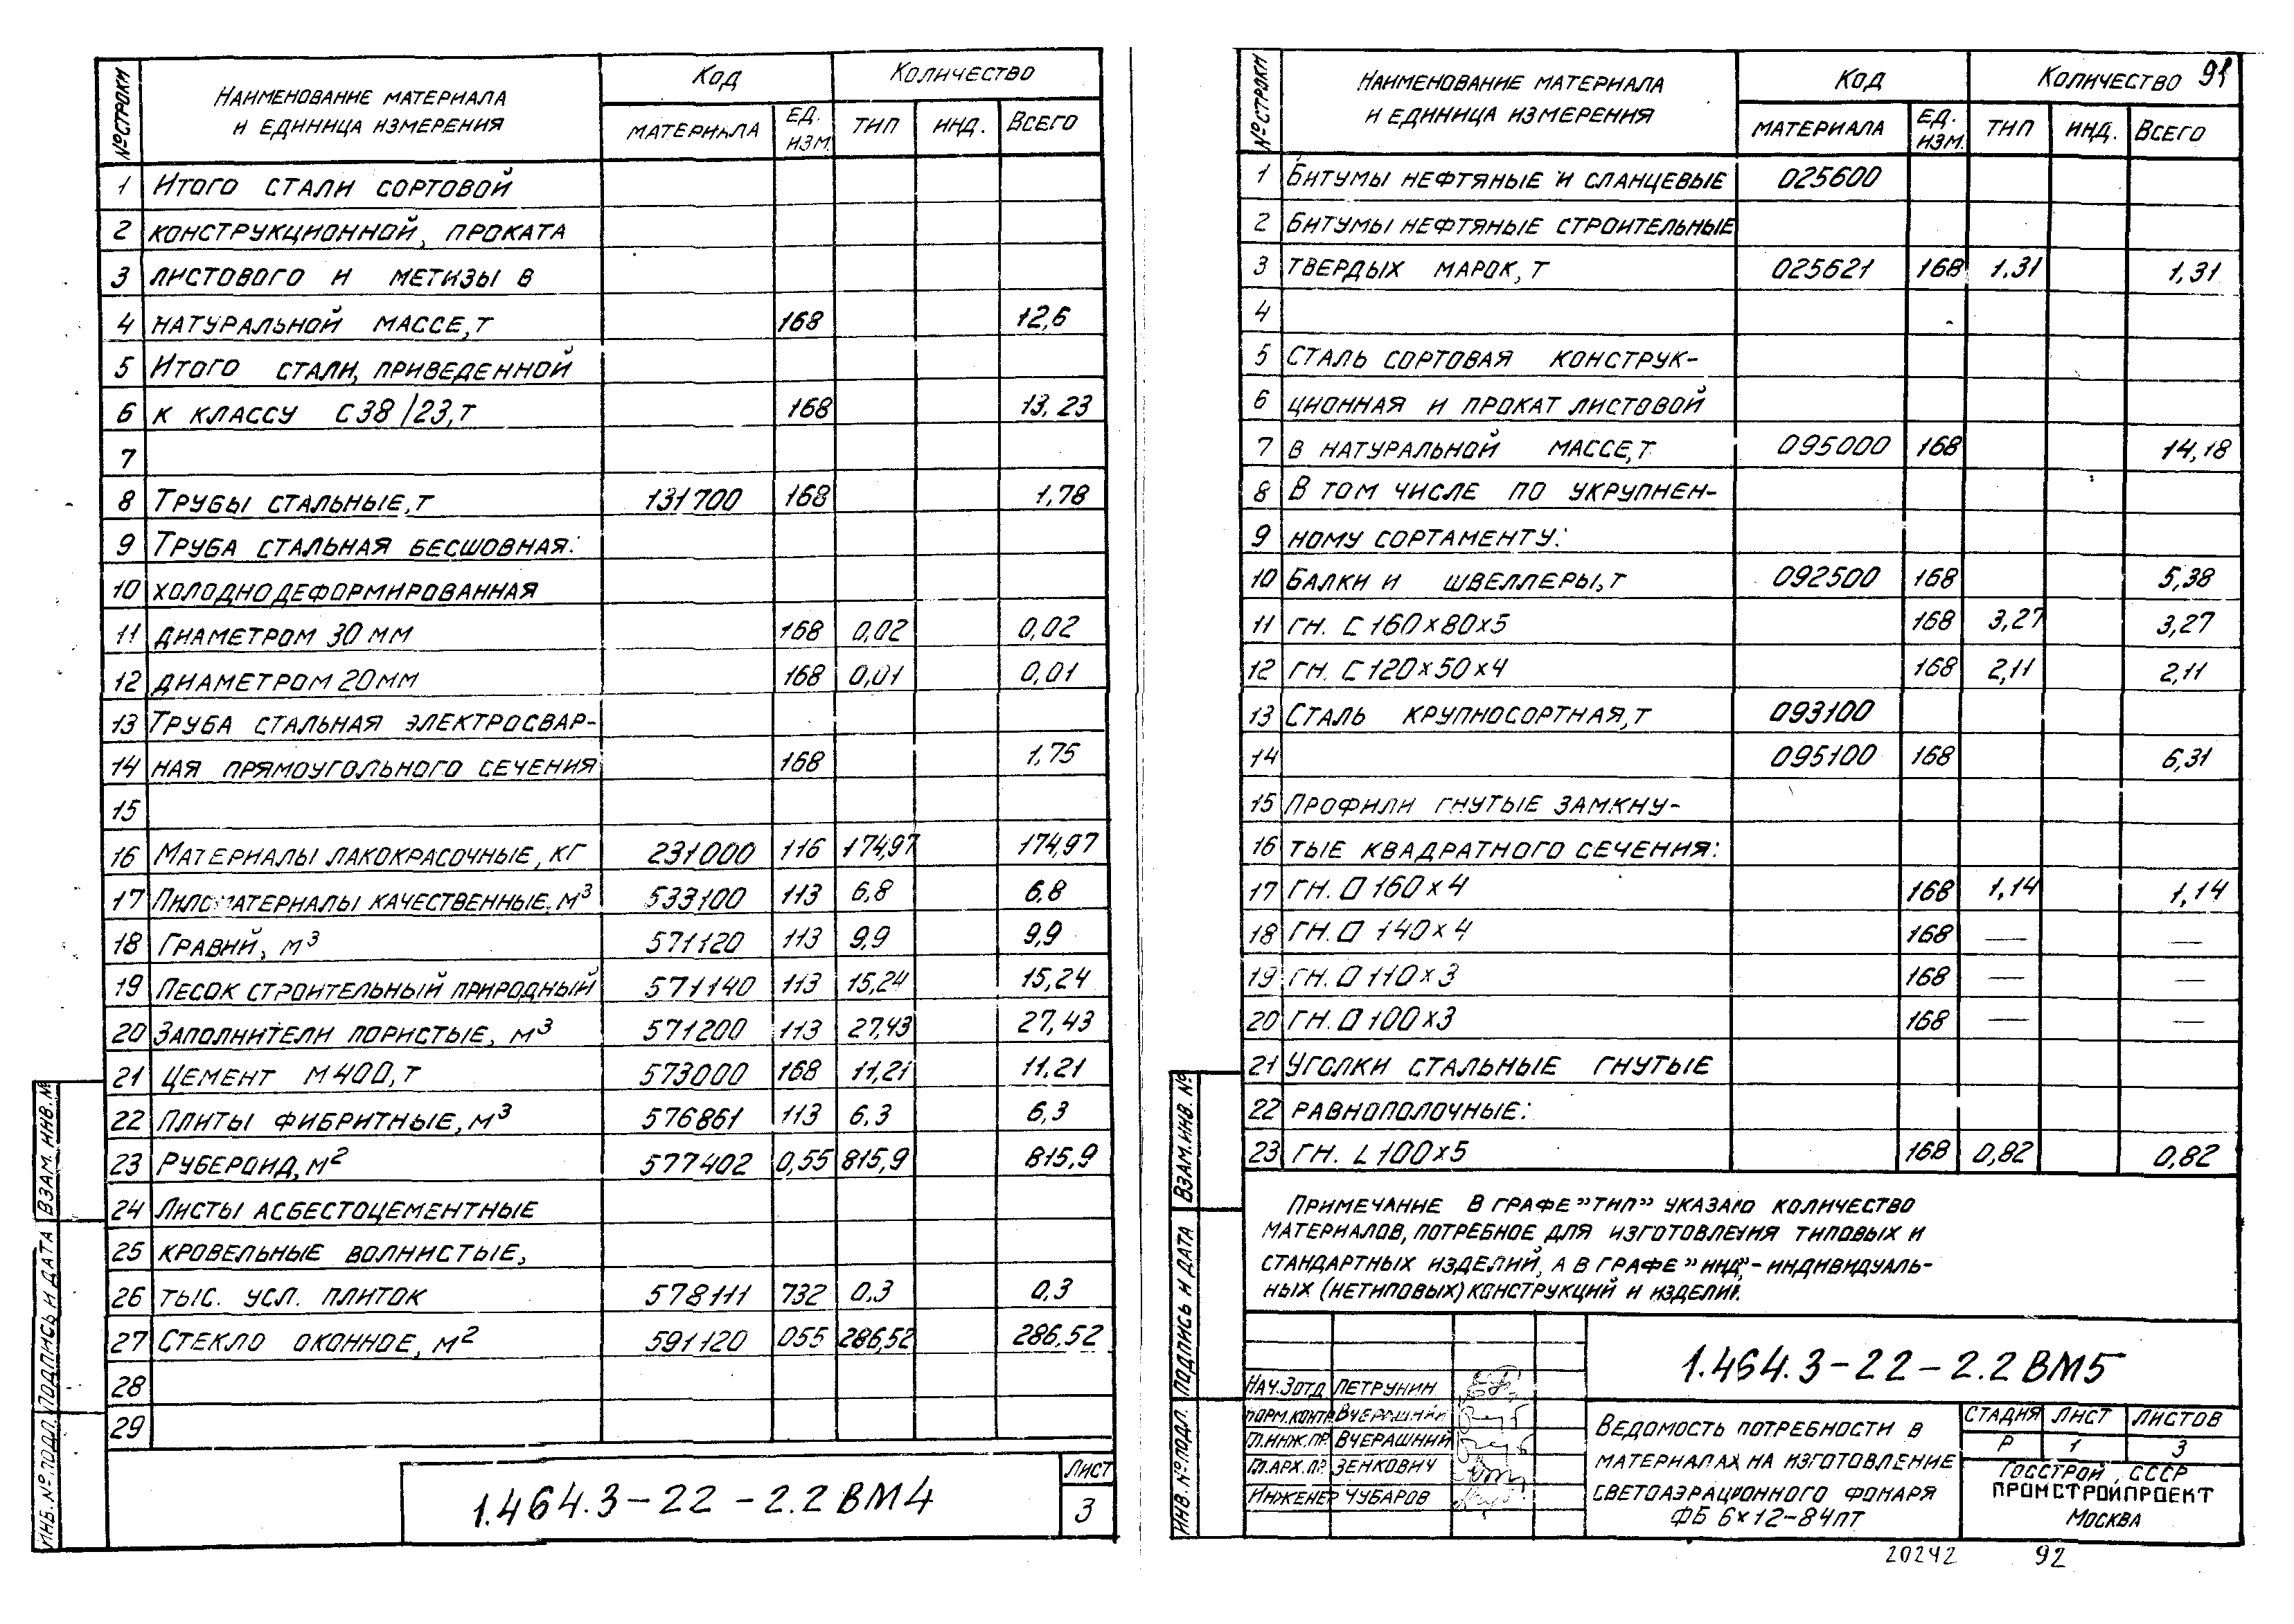 № СТРОКИ | НАИМЕНОВАНИЕ МАТЕРИАЛА И ЕДИНИЦА ИЗМЕРЕНИЯ | КОД | КОЛИЧЕСТВО
МАТЕРИАЛА | ЕД. ИЗМ. | ТИП | ИНД. | ВСЕГО
1 ИТОГО СТАЛИ СОРТОВОЙ
2 КОНСТРУКЦИОННОЙ, ПРОКАТА
3 ЛИСТОВОГО И МЕТИЗЫ В
4 НАТУРАЛЬНОЙ МАССЕ, Т 168 12,6
5 ИТОГО СТАЛИ, ПРИВЕДЕННОЙ
6 К КЛАССУ С38/23, Т 168 13,23
7
8 ТРУБЫ СТАЛЬНЫЕ, Т 131700 168 1,78
9 ТРУБА СТАЛЬНАЯ БЕСШОВНАЯ:
10 ХОЛОДНОДЕФОРМИРОВАННАЯ
11 ДИАМЕТРОМ 30 ММ 168 0,02 0,02
12 ДИАМЕТРОМ 20ММ 168 0,01 0,01
13 ТРУБА СТАЛЬНАЯ ЭЛЕКТРОСВАР-
14 НАЯ ПРЯМОУГОЛЬНОГО СЕЧЕНИЯ 168 1,75
15
16 МАТЕРИАЛЫ ЛАКОКРАСОЧНЫЕ, КГ 231000 116 174,97 174,97
17 ПИЛОМАТЕРИАЛЫ КАЧЕСТВЕННЫЕ, М³ 533100 113 6,8 6,8
18 ГРАВИЙ, М³ 571120 113 9,9 9,9
19 ПЕСОК СТРОИТЕЛЬНЫЙ ПРИРОДНЫЙ 571140 113 15,24 15,24
20 ЗАПОЛНИТЕЛИ ПОРИСТЫЕ, М³ 571200 113 27,43 27,43
21 ЦЕМЕНТ М400, Т 573000 168 11,21 11,21
22 ПЛИТЫ ФИБРИТНЫЕ, М³ 576861 113 6,3 6,3
23 РУБЕРОИД, М² 577402 0,55 815,9 815,9
24 ЛИСТЫ АСБЕСТОЦЕМЕНТНЫЕ
25 КРОВЕЛЬНЫЕ ВОЛНИСТЫЕ,
26 ТЫС. УСЛ. ПЛИТОК 578111 732 0,3 0,3
27 СТЕКЛО ОКОННОЕ, М² 591120 055 286,52 286,52
28
29
ИНВ. № ПОДЛ. ПОДПИСЬ И ДАТА ВЗАМ. ИНВ. №
1.464.3-22-2.2 ВМ4
ЛИСТ
3
91
№ СТРОКИ | НАИМЕНОВАНИЕ МАТЕРИАЛА И ЕДИНИЦА ИЗМЕРЕНИЯ | КОД | КОЛИЧЕСТВО
МАТЕРИАЛА | ЕД. ИЗМ. | ТИП | ИНД. | ВСЕГО
1 БИТУМЫ НЕФТЯНЫЕ И СЛАНЦЕВЫЕ 025600
2 БИТУМЫ НЕФТЯНЫЕ СТРОИТЕЛЬНЫЕ
3 ТВЕРДЫХ МАРОК, Т 025621 168 1,31 1,31
4
5 СТАЛЬ СОРТОВАЯ КОНСТРУК-
6 ЦИОННАЯ И ПРОКАТ ЛИСТОВОЙ
7 В НАТУРАЛЬНОЙ МАССЕ, Т 095000 168 14,18
8 В ТОМ ЧИСЛЕ ПО УКРУПНЕН-
9 НОМУ СОРТАМЕНТУ:
10 БАЛКИ И ШВЕЛЛЕРЫ, Т 092500 168 5,38
11 ГН. С 160×80×5 168 3,27 3,27
12 ГН. С 120×50×4 168 2,11 2,11
13 СТАЛЬ КРУПНОСОРТНАЯ, Т 093100
14 095100 168 6,31
15 ПРОФИЛИ ГНУТЫЕ ЗАМКНУ-
16 ТЫЕ КВАДРАТНОГО СЕЧЕНИЯ:
17 ГН. □ 160×4 168 1,14 1,14
18 ГН. □ 140×4 168 — —
19 ГН. □ 110×3 168 — —
20 ГН. □ 100×3 168 — —
21 УГОЛКИ СТАЛЬНЫЕ ГНУТЫЕ
22 РАВНОПОЛОЧНЫЕ:
23 ГН. L 100×5 168 0,82 0,82
ПРИМЕЧАНИЕ В ГРАФЕ "ТИП" УКАЗАНО КОЛИЧЕСТВО
МАТЕРИАЛОВ, ПОТРЕБНОЕ ДЛЯ ИЗГОТОВЛЕНИЯ ТИПОВЫХ И
СТАНДАРТНЫХ ИЗДЕЛИЙ, А В ГРАФЕ "ИНД"- ИНДИВИДУАЛЬ-
НЫХ (НЕТИПОВЫХ) КОНСТРУКЦИЙ И ИЗДЕЛИЙ.
ИНВ. № ПОДЛ. ПОДПИСЬ И ДАТА ВЗАМ. ИНВ. №
1.464.3-22-2.2 ВМ5
НАЧ. ОТД. ПЕТРУНИН
НОРМ. КОНТР. ВЧЕРАШНИЙ
ГЛ. ИНЖ. ПР. ВЧЕРАШНИЙ
ГЛ. АРХ. ПР. ЗЕНКОВИЧ
ИНЖЕНЕР ЧУБАРОВ
ВЕДОМОСТЬ ПОТРЕБНОСТИ В
МАТЕРИАЛАХ НА ИЗГОТОВЛЕНИЕ
СВЕТОАЭРАЦИОННОГО ФОНАРЯ
ФБ 6×12-84ПТ
СТАДИЯ ЛИСТ ЛИСТОВ
Р 1 3
ГОССТРОЙ СССР
ПРОМСТРОЙПРОЕКТ
МОСКВА
20242 92